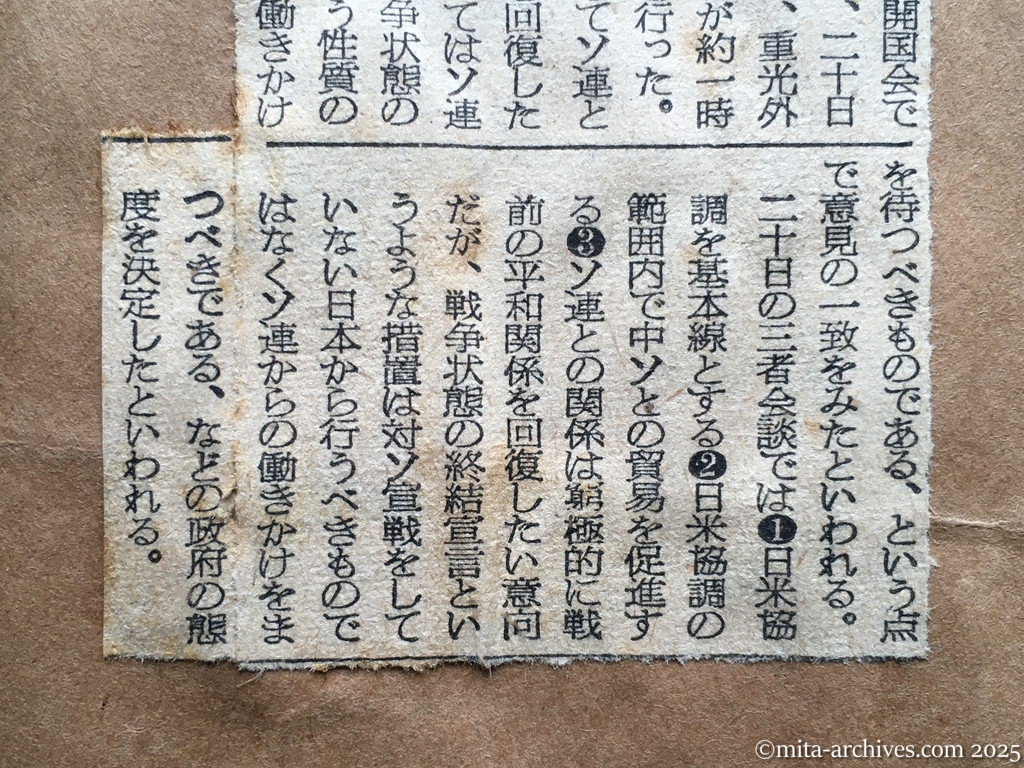 開国会で
、二十日
、重光外
が約一時
行った。
てソ連と
回復した
てはソ連
争状態の
う性質の
働きかけ
を待つべきものである、という点
で意見の一致をみたといわれる。
二十日の三者会談では❶日米協
調を基本線とする❷日米協調の
範囲内で中ソとの貿易を促進す
る❸ソ連との関係は窮極的に戦
前の平和関係を回復したい意向
だが、戦争状態の終結宣言とい
うような措置は対ソ宣戦をして
いない日本から行うべきもので
はなくソ連からの働きかけをま
つべきである、などの政府の態
度を決定したといわれる。
©mita-archives.com 2025